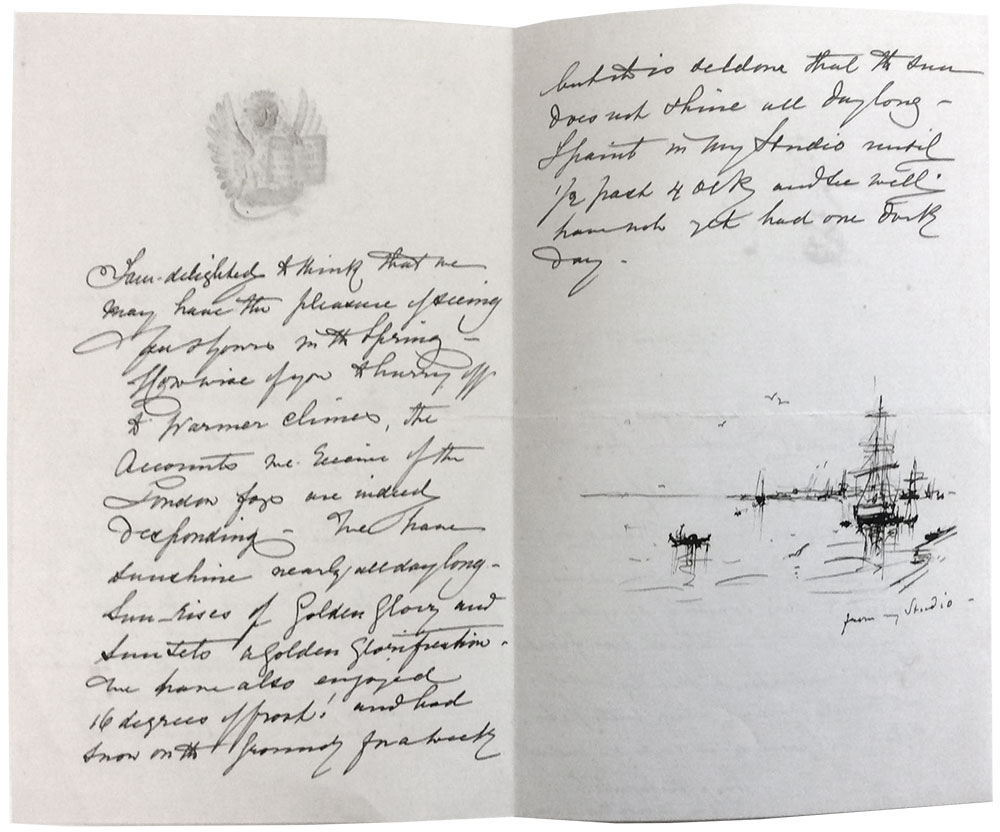 I am delighted to think that we
may have the pleasure of seeing
you & yours in the Spring -
How wise of you to hurry off
to warmer climes, the
Accounts we receive of the
London fogs are indeed
desponding - We have
sunshine nearly all day long -
Sun-rises of Golden Glory and
Sunsets a golden Glorification -
We have also enjoyed
16 degrees of frost! and had
snow on the ground for a week
but it is seldom that the sun
does not shine all day long -
I paint in my Studio until
1/2 past 4 oclk and see well:
have not yet had one dark
day -
from my Studio -